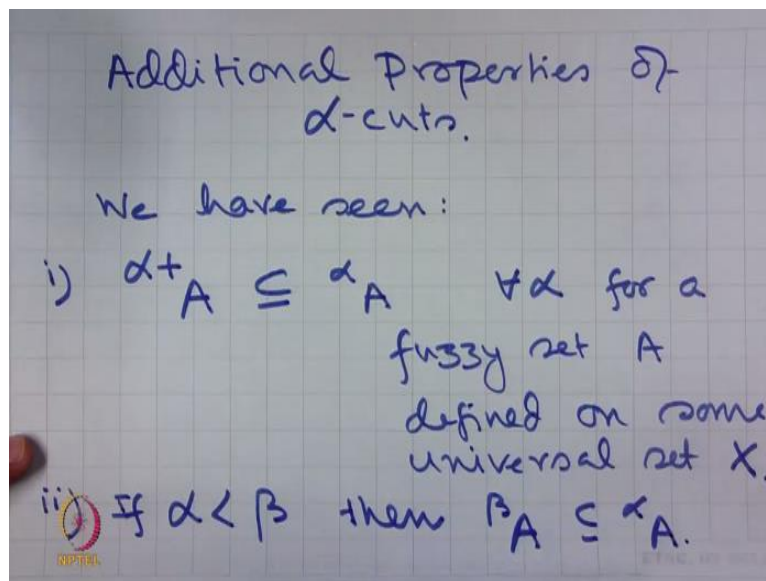 Additional Properties of
α-cuts.
We have seen:
i) ᵅ⁺A ⊆ ᵅA ∀α for a
fuzzy set A
defined on some
universal set X.
ii) If α < β then ᵝA ⊆ ᵅA.
NPTEL